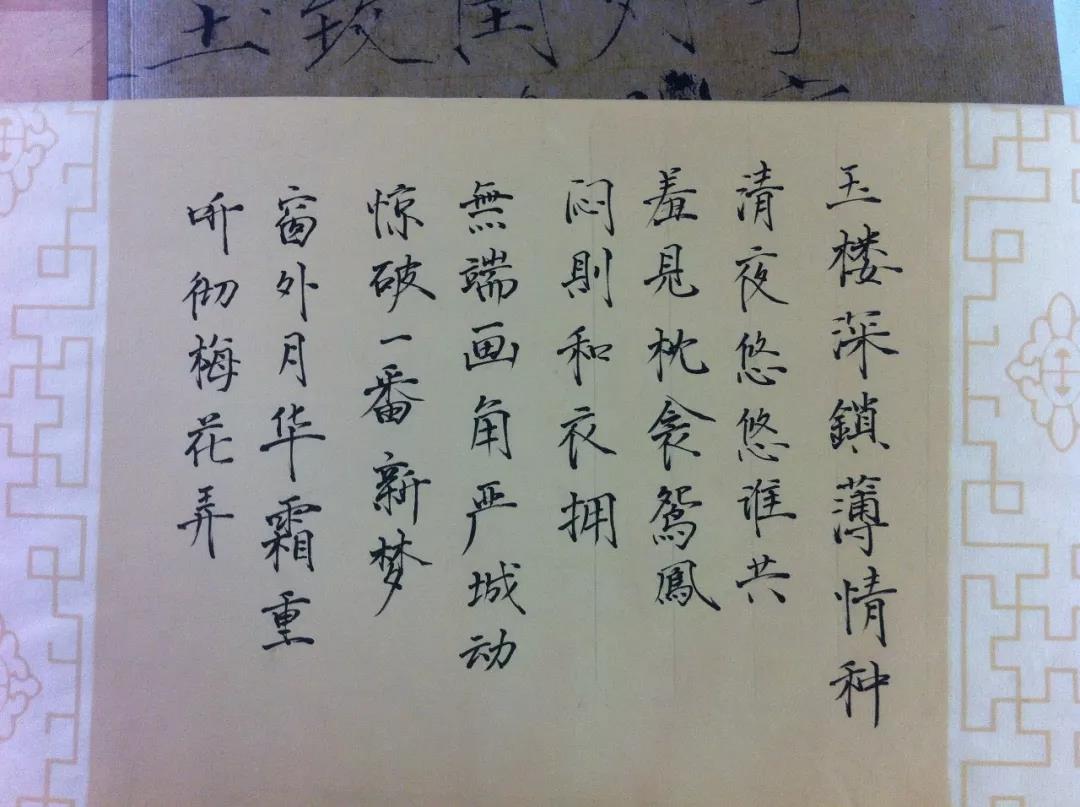 玉楼深鎖薄情种
清夜悠悠谁共
羞見枕衾鸳鳳
闷則和衣拥
無端画角严城动
惊破一番新梦
窗外月华霜重
听彻梅花弄